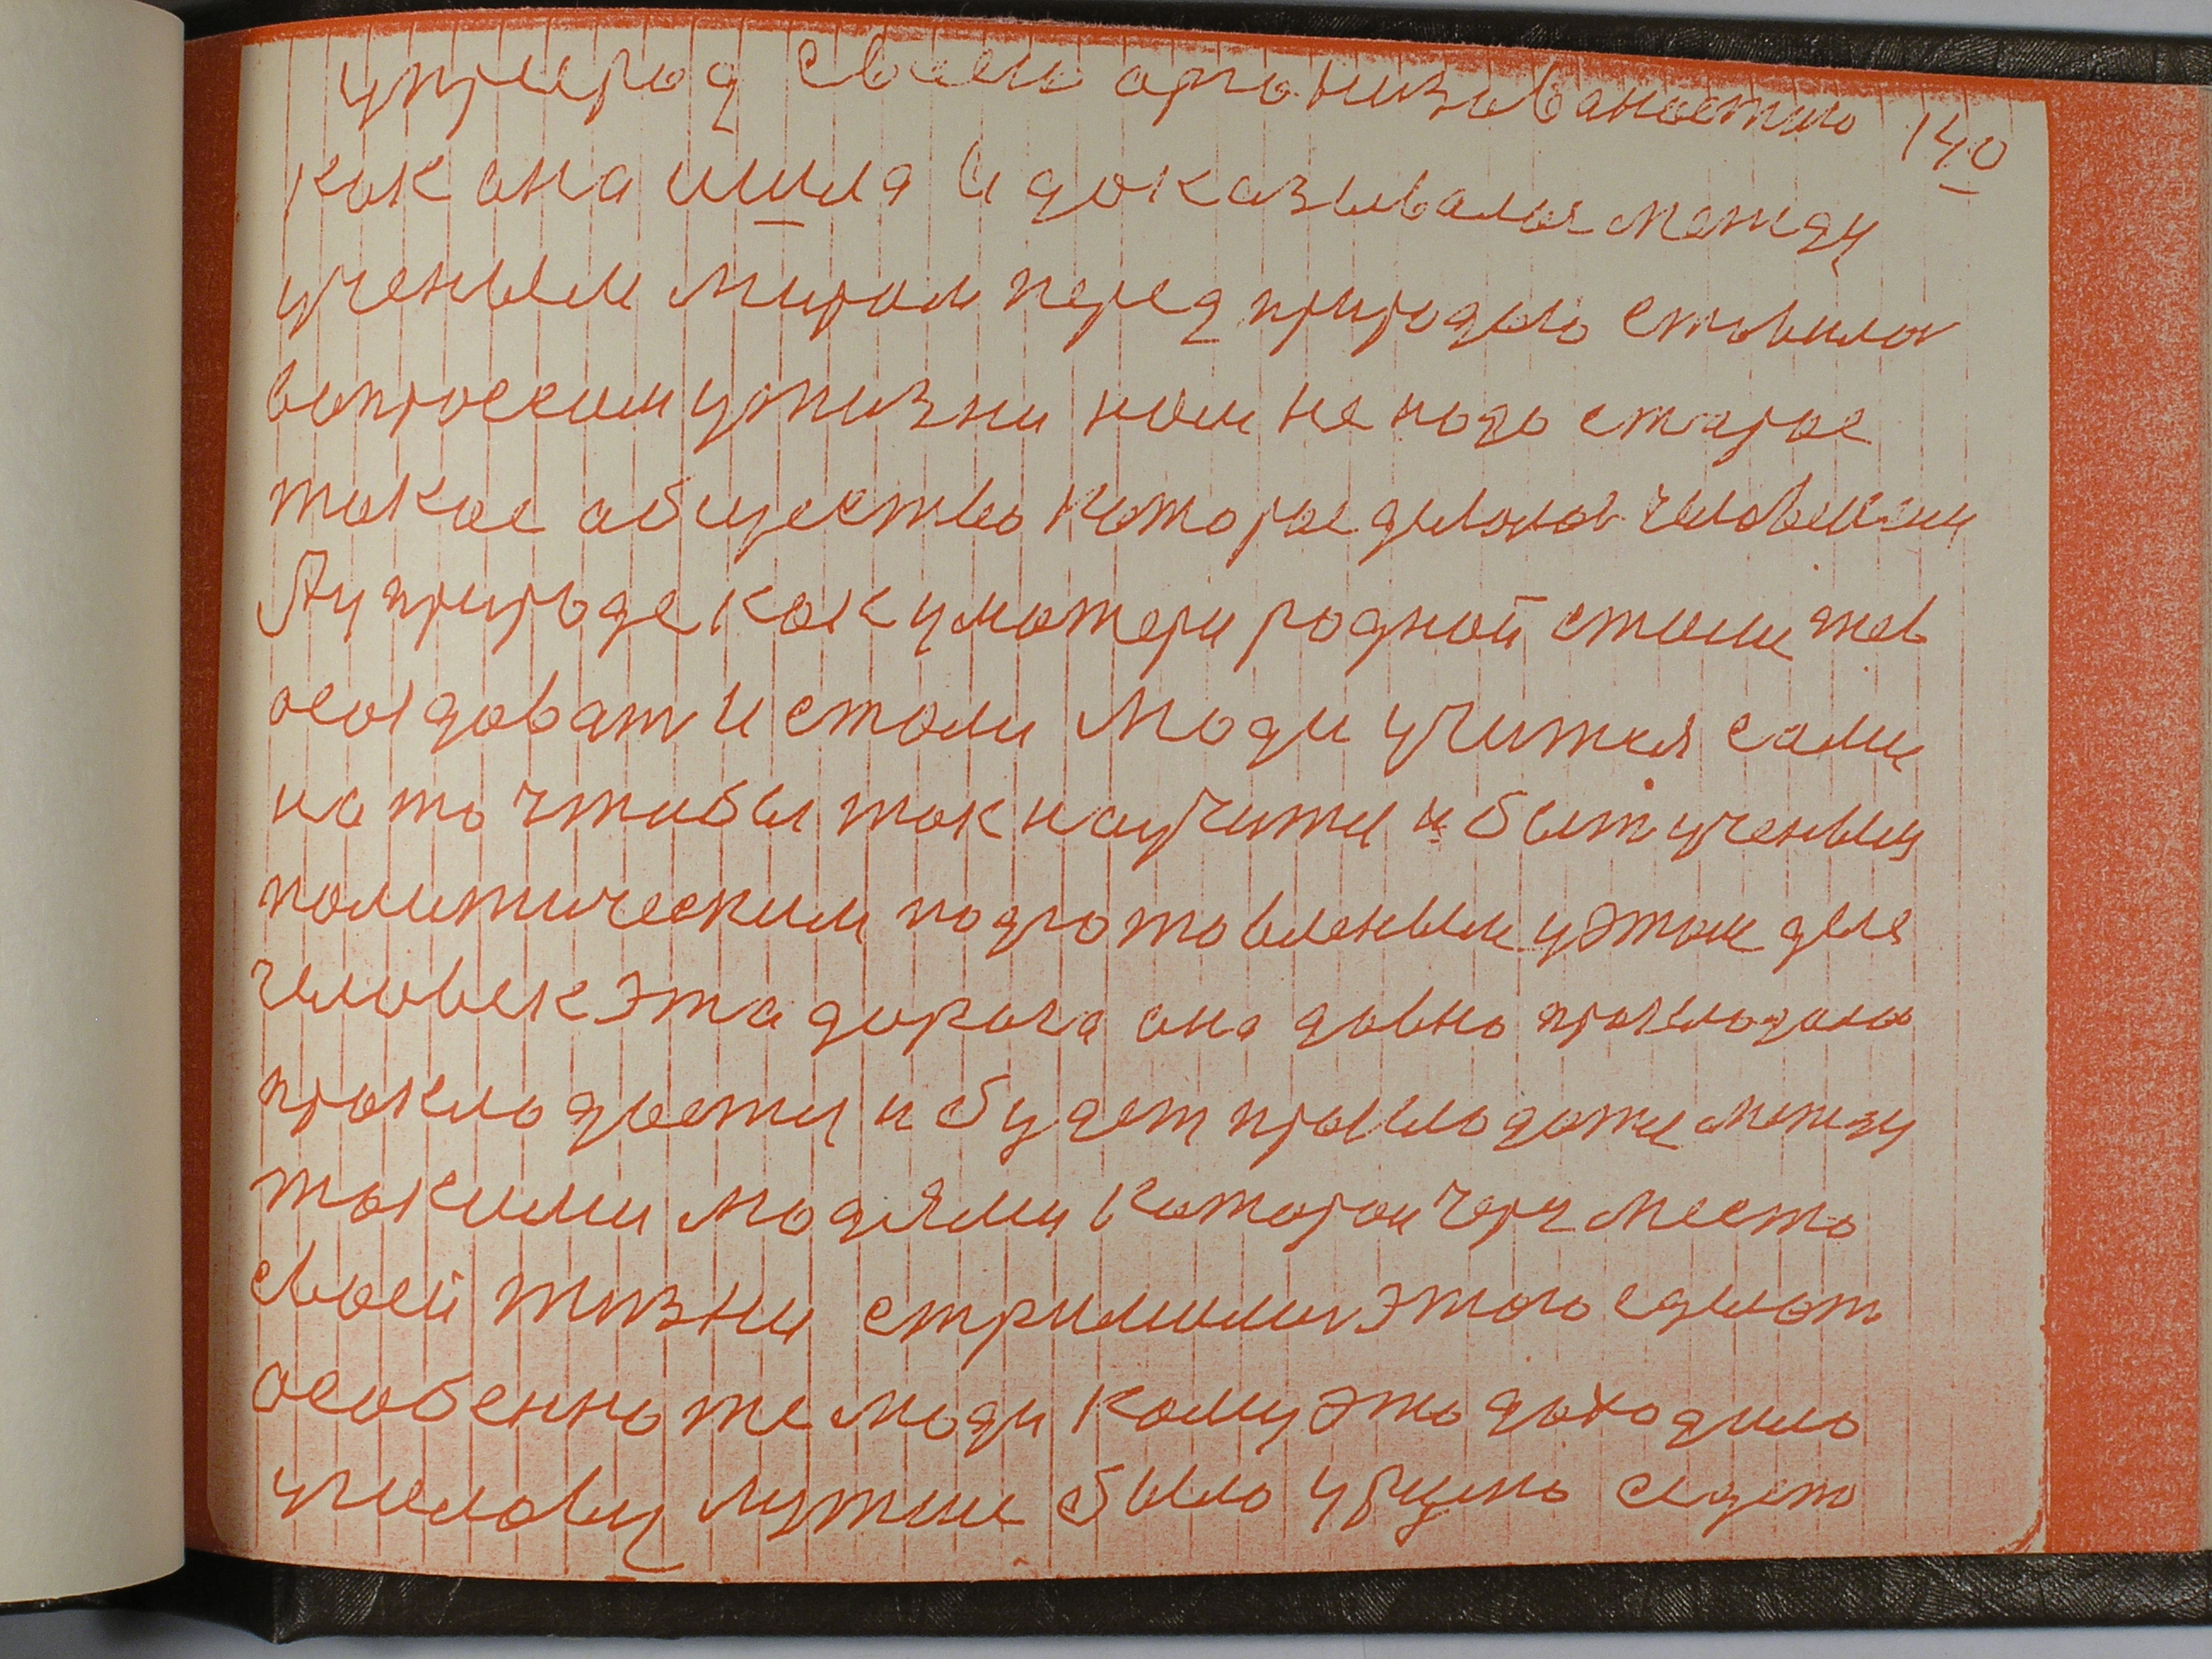 упперод своею организованостию 140
как она ишла и доказывалоя между
ученым миром перед природою ставилоя
вопросеким ужизни нам не надо старое
такое общество которое делалов человеком
Ау природе как у матери родной стали жев
оследоват и стали люди учится сами
на то чтобы так научится и быт ученым
политическим подготовленым уэтом деле
человек эта дорога она давно прокладалоя
прокладается и будет прокладатся между
такими людями которои черз место
своей жизни стримились этого сделат
особенно те люди кому это доходило
училову лутше было